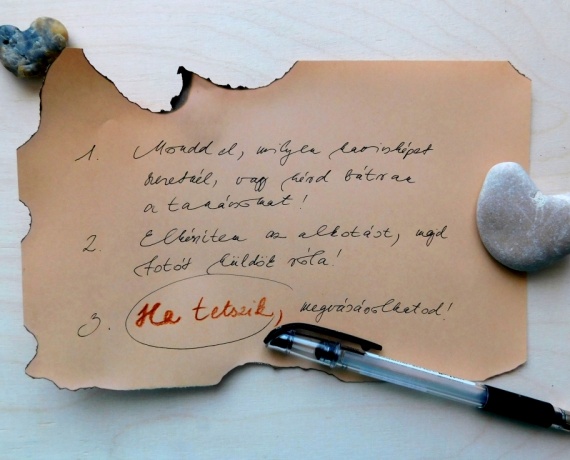 1. Mondd el, milyen kavicsképet
szeretnél, vagy kérd bátran
a tanácsomat!
2. Elkészítem az alkotást, majd
fotót küldök róla!
3. Ha tetszik, megvásárolhatod!